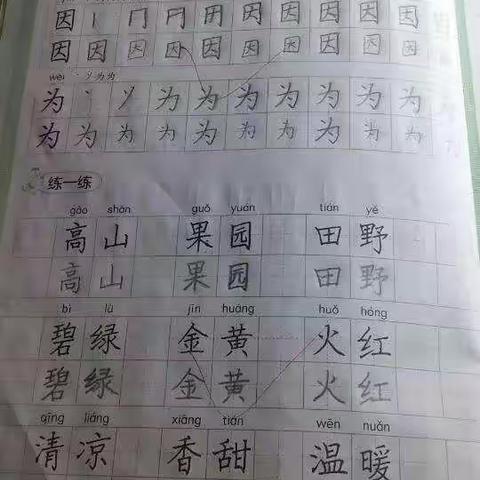 因 丨 冂 冂 冈 因 因 因 因 因
因 因 因 因 因 因 因 因 因 因
wèi 丶 ソ 为 为
为 丶 ソ 为 为 为 为 为 为 为
为 为 为 为 为 为 为 为 为 为
练一练
gāo shān guǒ yuán tián yě
高山 果园 田野
高山 果园 田野
bì lǜ jīn huáng huǒ hóng
碧绿 金黄 火红
碧绿 金黄 火红
qīng liáng xiāng tián wēn nuǎn
清凉 香甜 温暖